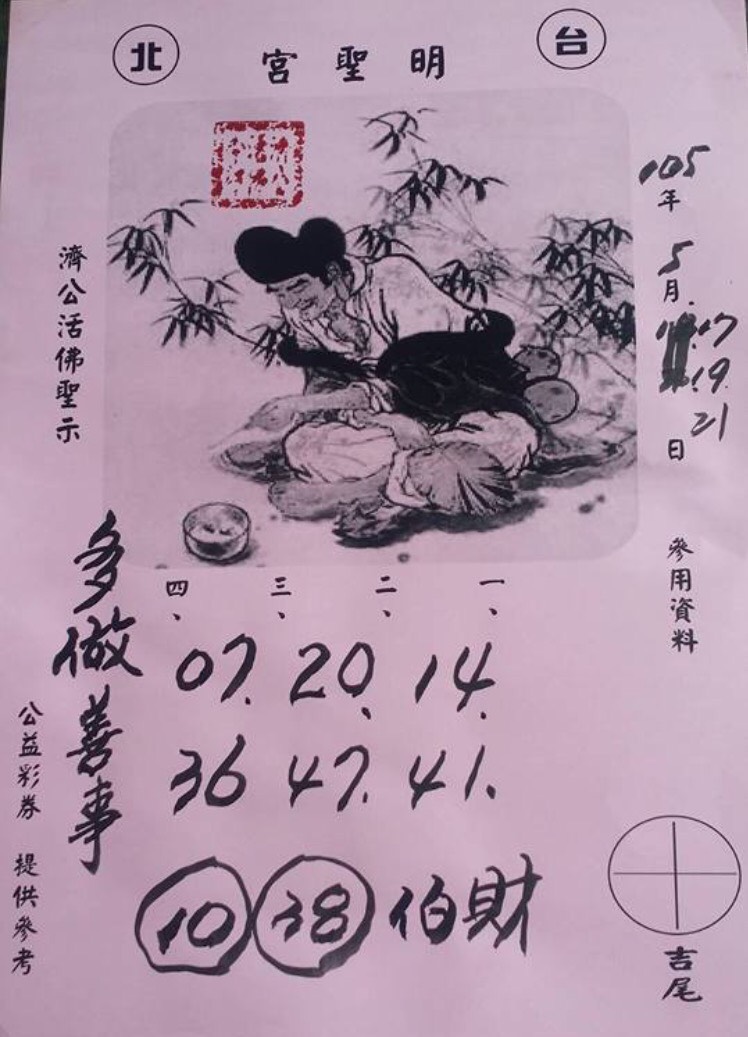 台 北
明聖宮
105年5月17.19.21日 參用資料
濟公活佛聖示
一、 二、 三、 四、
14. 20. 07.
41. 47. 36
財伯 38 10
多做善事
公益彩券 提供參考
吉尾